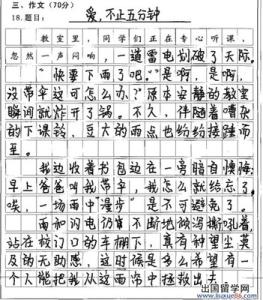 三、作文（70分）
18.题目：
爱,不止五分钟
教室里，同学们正在专心听课，
忽然一声闷响，一道雷电划破了天际。
"快要下雨了吧"是啊，是啊，
没带伞这可怎么办？原本安静的教室
瞬间就炸开了锅。不久，伴随着嘈杂
的下课铃，豆大的雨点也约约接踵而
至。
我边收着书包边在一旁暗自懊悔：
早上爸爸叫我带伞，我怎么就给忘了
唉，一场雨中漫步"是不可避免了。
雨和闪电仍旧不断地嘶吼着
站在校门口的车棚下，真有种望尘莫
及的无助感，这时候是多么希望有一
个人能把我从这雨帘中拯救出去
出国留学网
www.liuxue86.com